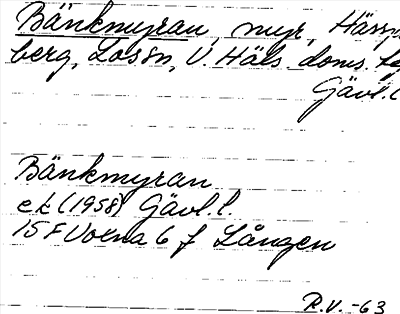 Bänkmyran, myr, Härj
berg, Los sn, V. Häls. doms.
Gävl. l
Bänkmyran
ek (1958) Gävl. l.
15F Voxna 6 f Lången
R.V. -63